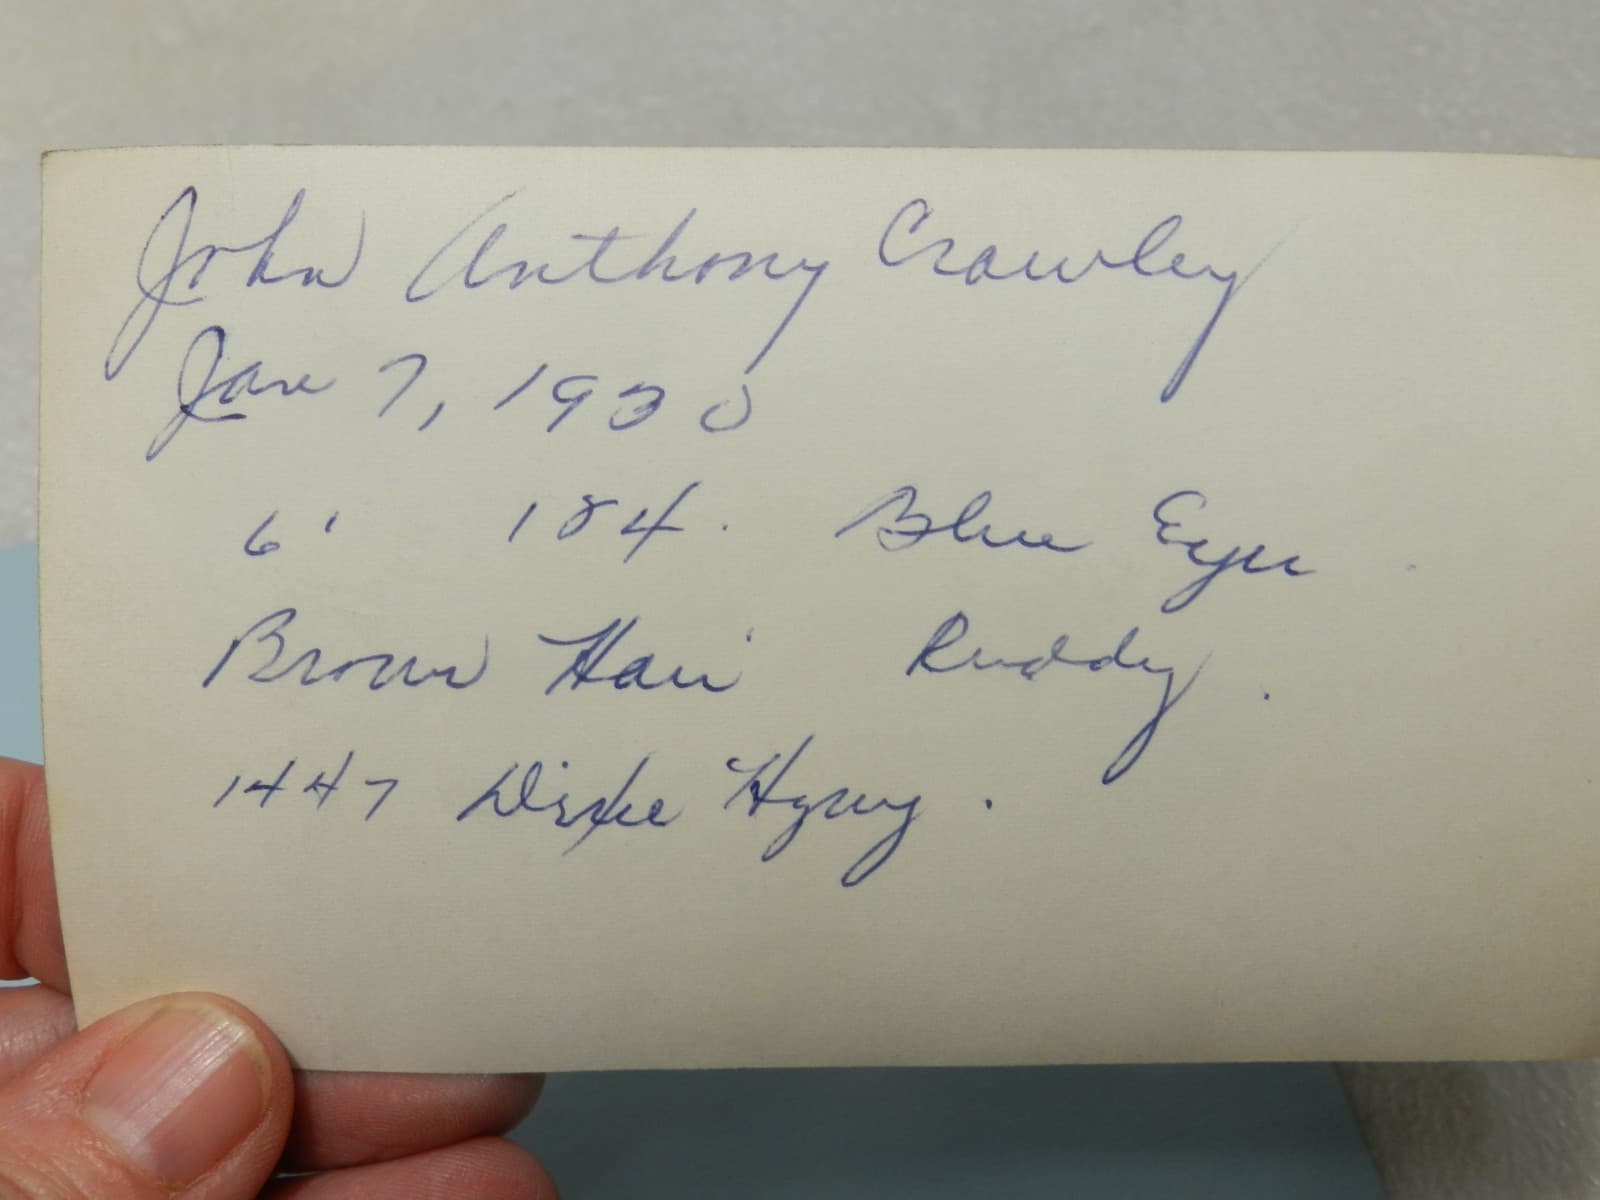 John Anthony Crawley
Jan 7, 1930
6' 184. Blue Eyes
Brown Hair Ruddy.
1447 Dixie Hgwy.